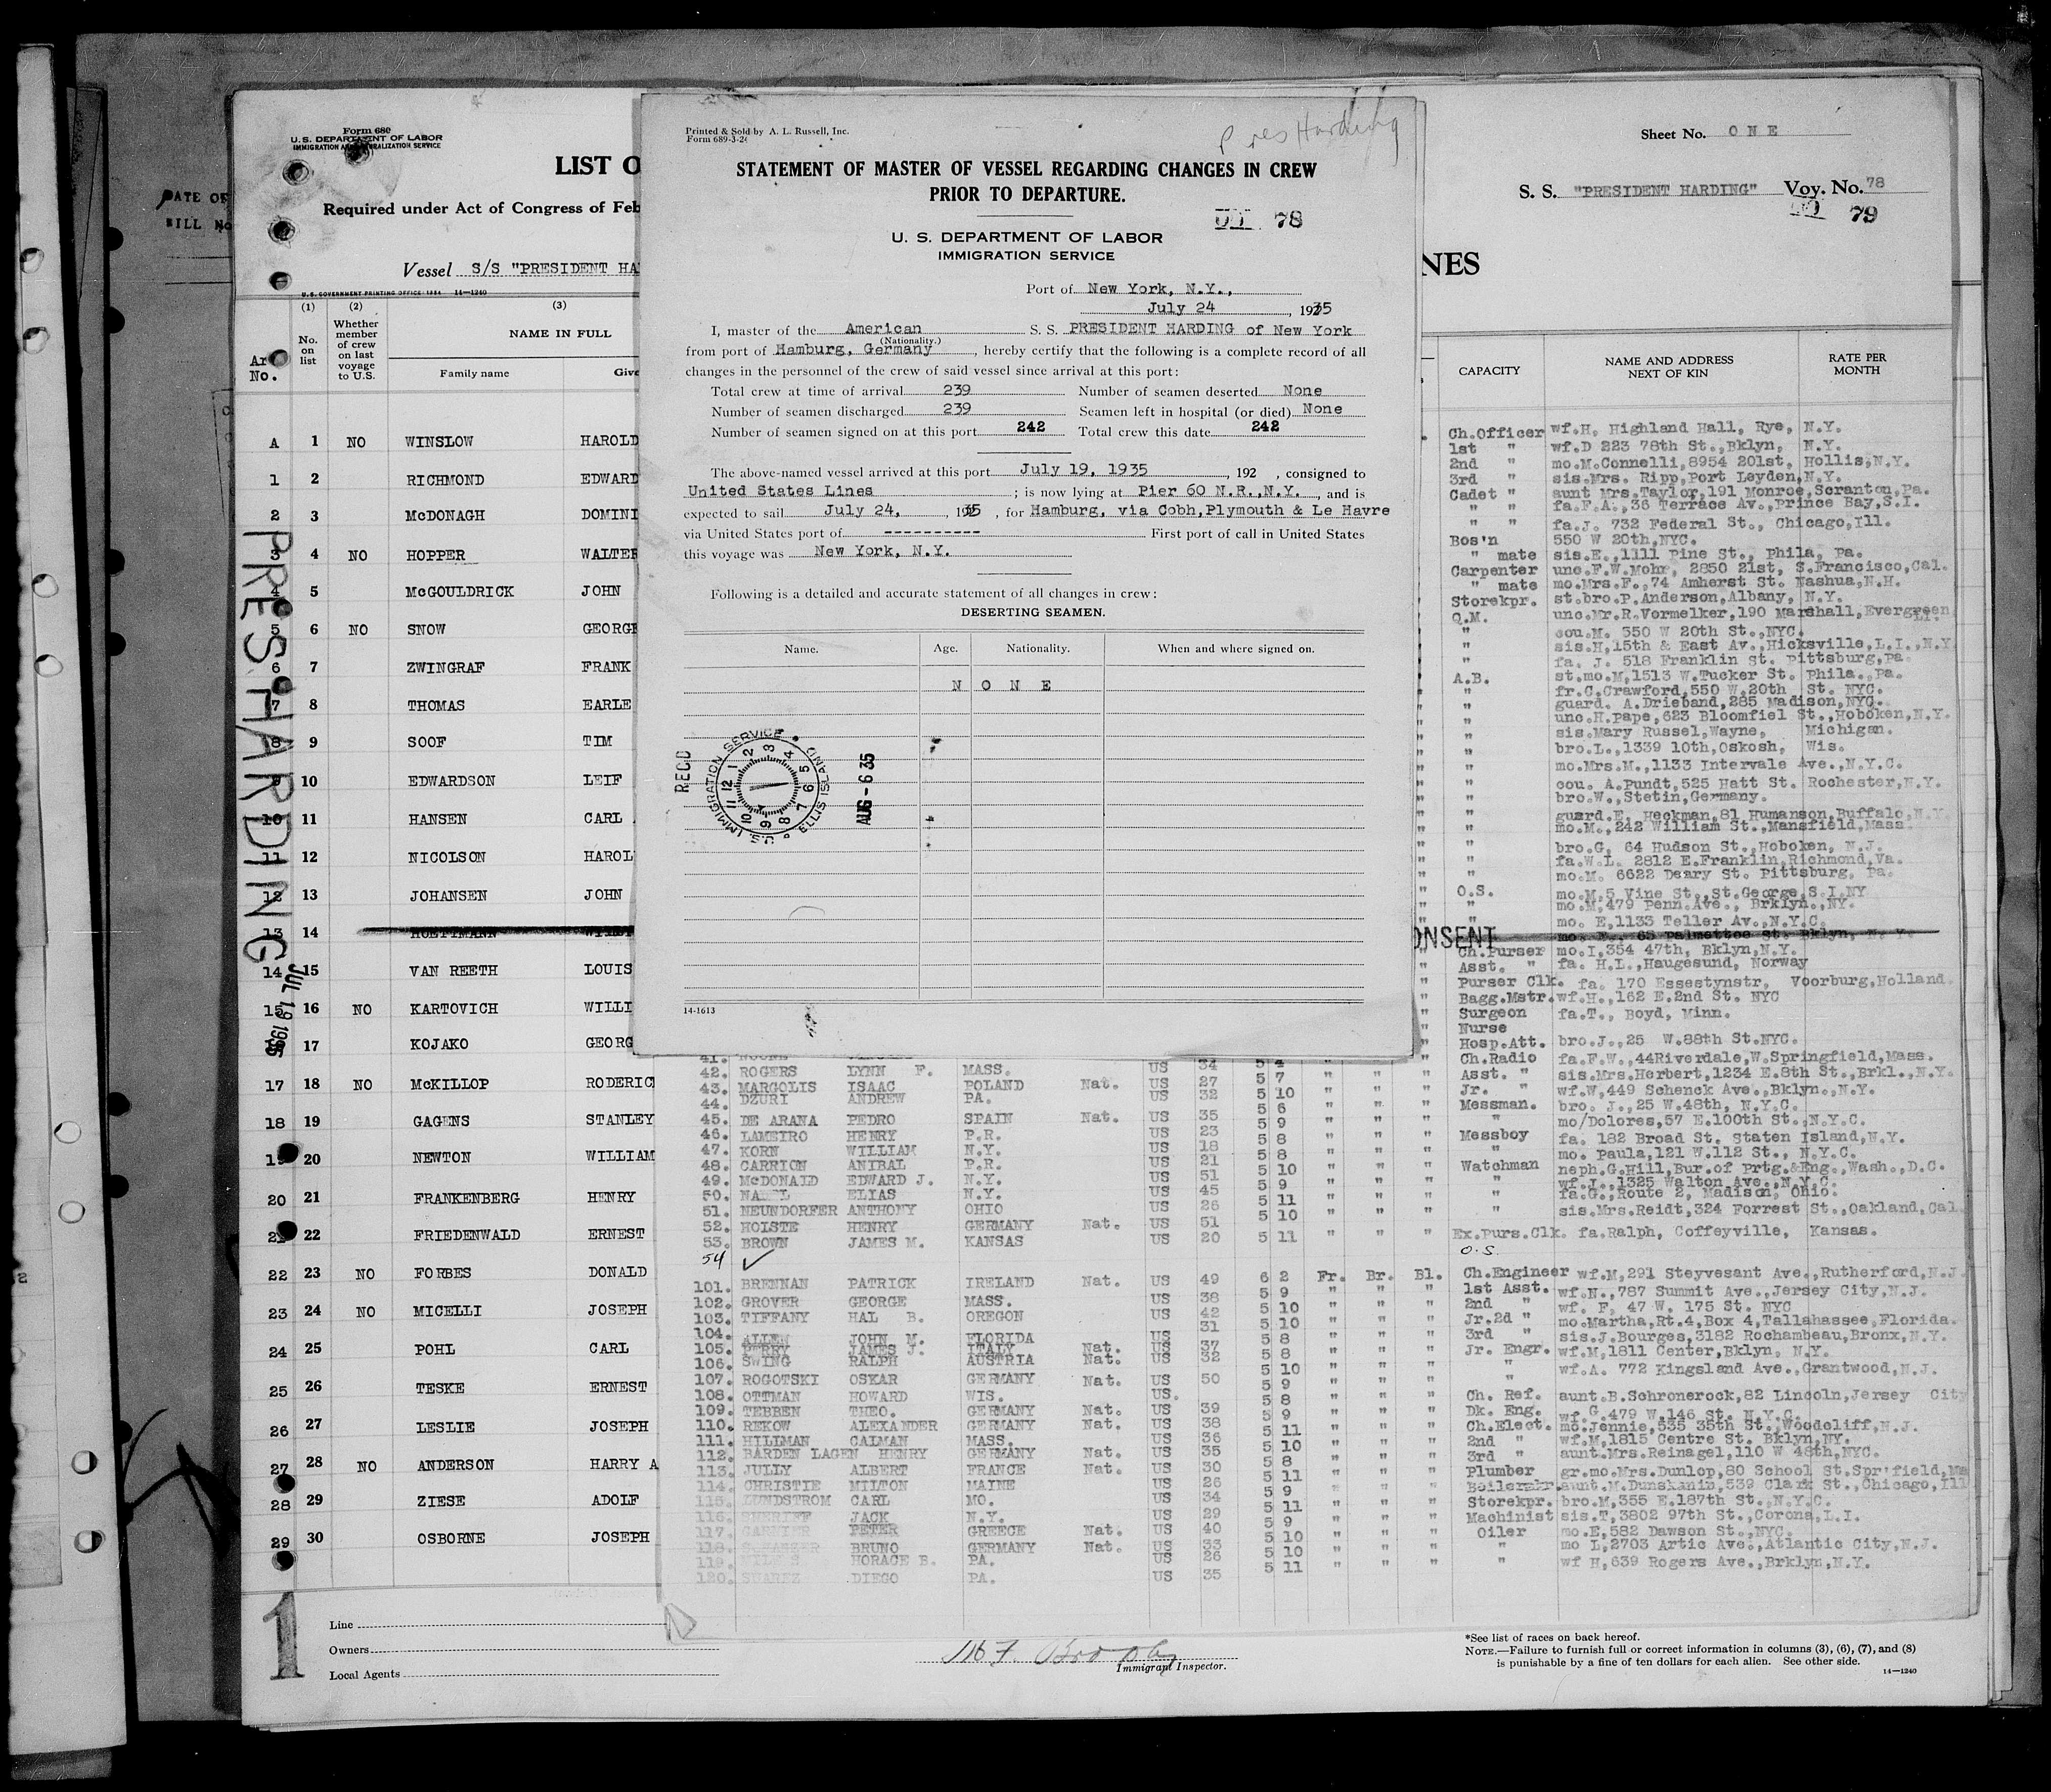 DATE OF
BILL No
Form 680
U. S. DEPARTMENT OF LABOR
IMMIGRATION AND NATURALIZATION SERVICE
LIST O
Required under Act of Congress of Feb
Vessel S/S "PRESIDENT HA
U.S. GOVERNMENT PRINTING OFFICE: 1934 14—1240
(1) (2) (3)
No. on list
Whether member of crew on last voyage to U.S.
NAME IN FULL
Family name Give
No.
A 1 NO WINSLOW HAROLD
1 2 RICHMOND EDWARD
2 3 McDONAGH DOMINI
3 4 NO HOPPER WALTER
4 5 McGOULDRICK JOHN
5 6 NO SNOW GEORGE
6 7 ZWINGRAF FRANK
7 8 THOMAS EARLE
8 9 SOOF TIM
9 10 EDWARDSON LEIF
10 11 HANSEN CARL
11 12 NICOLSON HAROL
12 13 JOHANSEN JOHN
13 14
14 15 VAN REETH LOUIS
15 16 NO KARTOVICH WILLI
17 KOJAKO GEORG
17 18 NO McKILLOP RODERIC
18 19 GAGENS STANLEY
19 20 NEWTON WILLIAM
20 21 FRANKENBERG HENRY
21 22 FRIEDENWALD ERNEST
22 23 NO FORBES DONALD
23 24 NO MICELLI JOSEPH
24 25 POHL CARL
25 26 TESKE ERNEST
26 27 LESLIE JOSEPH
27 28 NO ANDERSON HARRY A
28 29 ZIESE ADOLF
29 30 OSBORNE JOSEPH
PRES HARDING
JUL 19 1935
1
Line
Owners
Local Agents
Immigrant Inspector.
*See list of races on back hereof.
NOTE.—Failure to furnish full or correct information in columns (3), (6), (7), and (8)
is punishable by a fine of ten dollars for each alien. See other side.
14—1240
Printed & Sold by A. L. Russell, Inc.
Form 689-3-24
Pres Harding
STATEMENT OF MASTER OF VESSEL REGARDING CHANGES IN CREW
PRIOR TO DEPARTURE.
78
U. S. DEPARTMENT OF LABOR
IMMIGRATION SERVICE
Port of New York, N.Y.,
July 24, 1935
I, master of the American S. S. PRESIDENT HARDING of New York
(Nationality.)
from port of Hamburg, Germany, hereby certify that the following is a complete record of all
changes in the personnel of the crew of said vessel since arrival at this port:
Total crew at time of arrival 239 Number of seamen deserted None
Number of seamen discharged 239 Seamen left in hospital (or died) None
Number of seamen signed on at this port 242 Total crew this date 242
The above-named vessel arrived at this port July 19, 1935, 192 , consigned to
United States Lines ; is now lying at Pier 60 N.R.,N.Y. , and is
expected to sail July 24, , 1935 , for Hamburg, via Cobh,Plymouth & Le Havre
via United States port of ----------- First port of call in United States
this voyage was New York, N.Y.
Following is a detailed and accurate statement of all changes in crew:
DESERTING SEAMEN.
Name. Age. Nationality. When and where signed on.
N O N E
REC'D
U.S. IMMIGRATION SERVICE ELLIS ISLAND
1 2 3 4 5 6 7 8 9 10 11 12
AUG - 6 35
14-1613
Sheet No. O N E
S. S. "PRESIDENT HARDING" Voy. No. 78
79
NES
CAPACITY
NAME AND ADDRESS NEXT OF KIN
RATE PER MONTH
Ch.Officer wf.H. Highland Hall, Rye, N.Y.
1st " wf.D 223 78th St.,Bklyn, N.Y.
2nd " mo.M.Connelli,8954 201st, Hollis,N.Y.
3rd " sis.Mrs. Ripp,Port Leyden,N.Y.
Cadet " aunt Mrs.Taylor,191 Monroe,Scranton,Pa.
" " fa.F.A.,36 Terrace Av.,Prince Bay,S.I.
" " fa.J. 732 Federal St., Chicago,Ill.
Bos'n 550 W 20th,NYC.
" mate sis.E.,1111 Pine St., Phila, Pa.
Carpenter unc.F.W.Mohr, 2850 21st, S.Francisco,Cal.
" mate mo.Mrs.F.,74 Amherst St. Nashua,N.H.
Storekpr. st.bro.P.Anderson,Albany, N.Y.
Q.M. unc.Mr.R.Vormelker,190 Marshall,Evergreen
" cou.M. 550 W 20th St.,NYC.
" sis.H,15th & East Av.,Hicksville,L.I.,N.Y
" fa. J. 518 Franklin St. Pittsburg,Pa.
A.B. st.mo.M,1513 W.Tucker St. Phila.,Pa.
" fr.C.Crawford,550 W.20th St. NYC.
" guard. A.Drieband,285 Madison,NYC.
" unc.H.Pape,623 Bloomfiel St.,Hoboken,N.Y.
" sis.Mary Russel,Wayne, Michigan.
" bro.L.,1339 10th,Oskosh, Wis.
" mo.Mrs.M.,1133 Intervale Ave.,N.Y.C.
" cou. A.Pundt,525 Hatt St. Rochester,N.Y.
" bro.W.,Stetin,Germany.
" guard.E. Heckman,81 Humanson,Buffalo,N.Y.
" mo.M.,242 William St.,Mansfield,Mass.
" bro.G. 64 Hudson St.,Hoboken, N.J.
" fa.W.L. 2812 E.Franklin,Richmond,Va.
" mo.M. 6622 Deary St. Pittsburg, Pa.
O.S. mo.M.5 Vine St.,St.George,S.I.NY
" mo.M,479 Penn.Ave., Brklyn.,NY.
" mo. E,1133 Teller Av.,N.Y.C.
ONSENT mo. E., 65 Palmettoe St. Bklyn, N. Y.
Ch.Purser mo.I,354 47th, Bklyn,N.Y.
Asst. " fa. H.L.,Haugesund, Norway
Purser Clk. fa. 170 Essestynstr, Voorburg,Holland.
Bagg.Mstr. wf.H.,162 E.2nd St. NYC
Surgeon fa.T., Boyd, Minn.
Nurse
Hosp.Att. bro.J.,25 W.88th St.NYC.
Ch.Radio fa.F.W.,44Riverdale,W.Springfield,Mass.
Asst. " sis.Mrs.Herbert,1234 E.8th St.,Brkl.,N.Y.
Jr. " wf.W,449 Schenck Ave.,Bklyn.,N.Y.
Messman. bro. J.,25 W.48th, N.Y.C.
" mo/Dolores,57 E.100th St.,N.Y.C.
Messboy fa. 182 Broad St. Staten Island,N.Y.
" mo. Paula,121 W.112 St., N.Y.C.
Watchman neph.G.Hill,Bur.of Prtg.&Eng.,Wash.,D.C.
" wf.I.,1325 Walton Ave.,N.Y.C.
" fa.G.,Route 2, Madison, Ohio.
" sis.Mrs.Reidt,324 Forrest St.,Oakland,Cal.
Ex.Purs.Clk. fa.Ralph, Coffeyville, Kansas.
O.S.
Ch.Engineer wf.M,291 Steyvesant Ave.,Rutherford,N.J.
1st Asst. wf.N.,787 Summit Ave.,Jersey City,N.J.
2nd " wf. F, 47 W. 175 St. NYC
Jr.2d " mo.Martha,Rt.4,Box 4,Tallahassee,Florida.
3rd " sis.J.Bourges,3182 Rochambeau,Bronx,N.Y.
Jr. Engr. wf.M,1811 Center,Bklyn, N.Y.
" wf.A. 772 Kingsland Ave.,Grantwood,N.J.
Ch. Ref. aunt.B.Schronerock,82 Lincoln,Jersey City
Dk. Eng. wf.G.479 W.146 St. N.Y.C.
Ch.Elect. mo.Jennie,535 38th St.,Woodcliff,N.J.
2nd " wf.M,1815 Centre St. Bklyn,NY.
3rd " aunt.Mrs.Reinagel,110 W 48th,NYC.
Plumber gr.mo.Mrs.Dunlop,80 School St.Spr'field,Ma
Boilermkr. aunt.M.Dunskanin,539 Clark St.,Chicago,Ill
Storekpr. bro.M,355 E.187th St.,N.Y.C.
Machinist sis.T,3802 97th St.,Corona,L.I.
Oiler mo.E,582 Dawson St.,NYC.
" mo L,2703 Artic Ave.,Atlantic City,N.J.
" wf H,639 Rogers Ave.,Brklyn,N.Y.
41.
42. ROGERS LYNN F. MASS. US 34
43. MARGOLIS ISAAC POLAND Nat. US 27 5 7
44. DZURI ANDREW PA. US 32 5 10
45. DE ARANA PEDRO SPAIN Nat. US 35 5 6
46. LAMEIRO HENRY P.R. US 23 5 9
47. KORN WILLIAM N.Y. US 18 5 8
48. CARRION ANIBAL P.R. US 21 5 8
49. McDONALD EDWARD J. N.Y. US 51 5 10
50. NADEL ELIAS N.Y. US 45 5 9
51. NEUNDORFER ANTHONY OHIO US 26 5 11
52. HOISTE HENRY GERMANY Nat. US 51 5 10
53. BROWN JAMES M. KANSAS US 20 5 11
54 ✓
101. BRENNAN PATRICK IRELAND Nat. US 49 6 2 Fr. Br. Bl.
102. GROVER GEORGE MASS. US 38 5 9
103. TIFFANY HAL B. OREGON US 42 5 10
104. ALLEN JOHN M. FLORIDA US 31 5 10
105. PERRY JAMES J. ITALY Nat. US 37 5 8
106. SWING RALPH AUSTRIA Nat. US 32 5 8
107. ROGOTSKI OSKAR GERMANY Nat. US 50 5 10
108. OTTMAN HOWARD WIS. US. 5 9
109. TEBBEN THEO. GERMANY Nat. US 39 5 8
110. REKOW ALEXANDER GERMANY Nat. US 38 5 9
111. HILLMAN CALMAN MASS. US 36 5 11
112. BARDEN LAGEN HENRY GERMANY Nat. US 35 5 10
113. JULLY ALBERT FRANCE Nat. US 30 5 8
114. CHRISTIE MILTON MAINE US 26 5 11
115. LUNDSTROM CARL MO. US 34 5 9
116. SHERIFF JACK N.Y. US 29 5 11
117. PETER GREECE Nat. US 40 5 9
118. BRUNO GERMANY Nat. US 33 5 10
119. HORACE B. PA. US 26 5 10
120. SUAREZ DIEGO PA. US 35 5 11